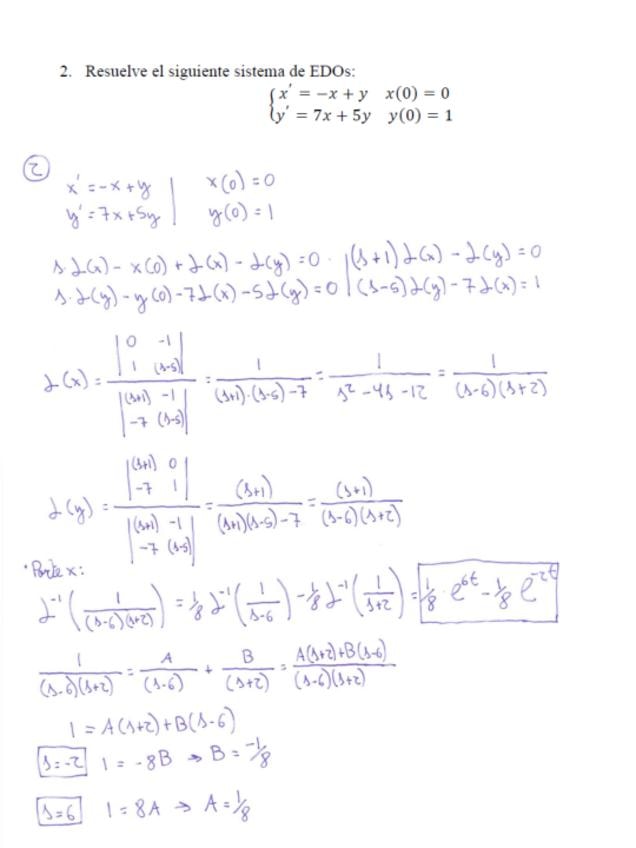 2. Resuelve el siguiente sistema de EDOs:
{x' = −x + y   x(0) = 0
{y' = 7x + 5y   y(0) = 1
②
x' = -x + y | x(0) = 0
y' = 7x + 5y | y(0) = 1
s·ℒ(x) - x(0) + ℒ(x) - ℒ(y) = 0 | (s+1)ℒ(x) - ℒ(y) = 0
s·ℒ(y) - y(0) - 7ℒ(x) - 5ℒ(y) = 0 | (s-5)ℒ(y) - 7ℒ(x) = 1
ℒ(x) = |0 -1; 1 (s-5)| / |(s+1) -1; -7 (s-5)| = 1/((s+1)·(s-5)-7) = 1/(s² - 4s - 12) = 1/((s-6)(s+2))
ℒ(y) = |(s+1) 0; -7 1| / |(s+1) -1; -7 (s-5)| = (s+1)/((s+1)(s-5)-7) = (s+1)/((s-6)(s+2))
·Parte x:
ℒ⁻¹(1/((s-6)(s+2))) = 1/8 ℒ⁻¹(1/(s-6)) - 1/8 ℒ⁻¹(1/(s+2)) = 1/8·e^{6t} - 1/8 e^{-2t}
1/((s-6)(s+2)) = A/(s-6) + B/(s+2) = (A(s+2)+B(s-6))/((s-6)(s+2))
1 = A(s+2) + B(s-6)
s=-2 1 = -8B → B = -1/8
s=6 1 = 8A → A = 1/8